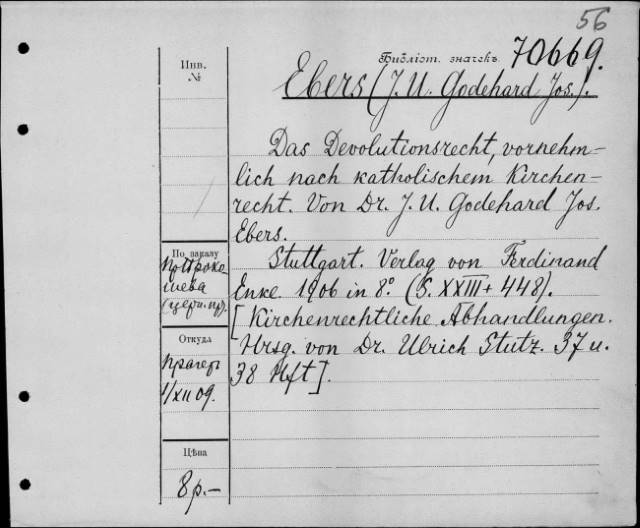 56
Библіот. значекъ 70669.
Ebers (J. U. Godehard Jos.).
Инв.
№
Das Devolutionsrecht, vornehm-
lich nach katholischem Kirchen-
recht. Von Dr. J. U. Godehard Jos.
Ebers.
Stuttgart. Verlag von Ferdinand
Enke 1906 in 8° (S. XXIII + 448).
[Kirchenrechtliche Abhandlungen.
Hrsg. von Dr. Ulrich Stutz. 37 u.
38 Hft].
По заказу
пр. Проко-
шева
(церк. пр.).
Откуда
Прагеръ
1/XII 09.
Цѣна
8 р.-